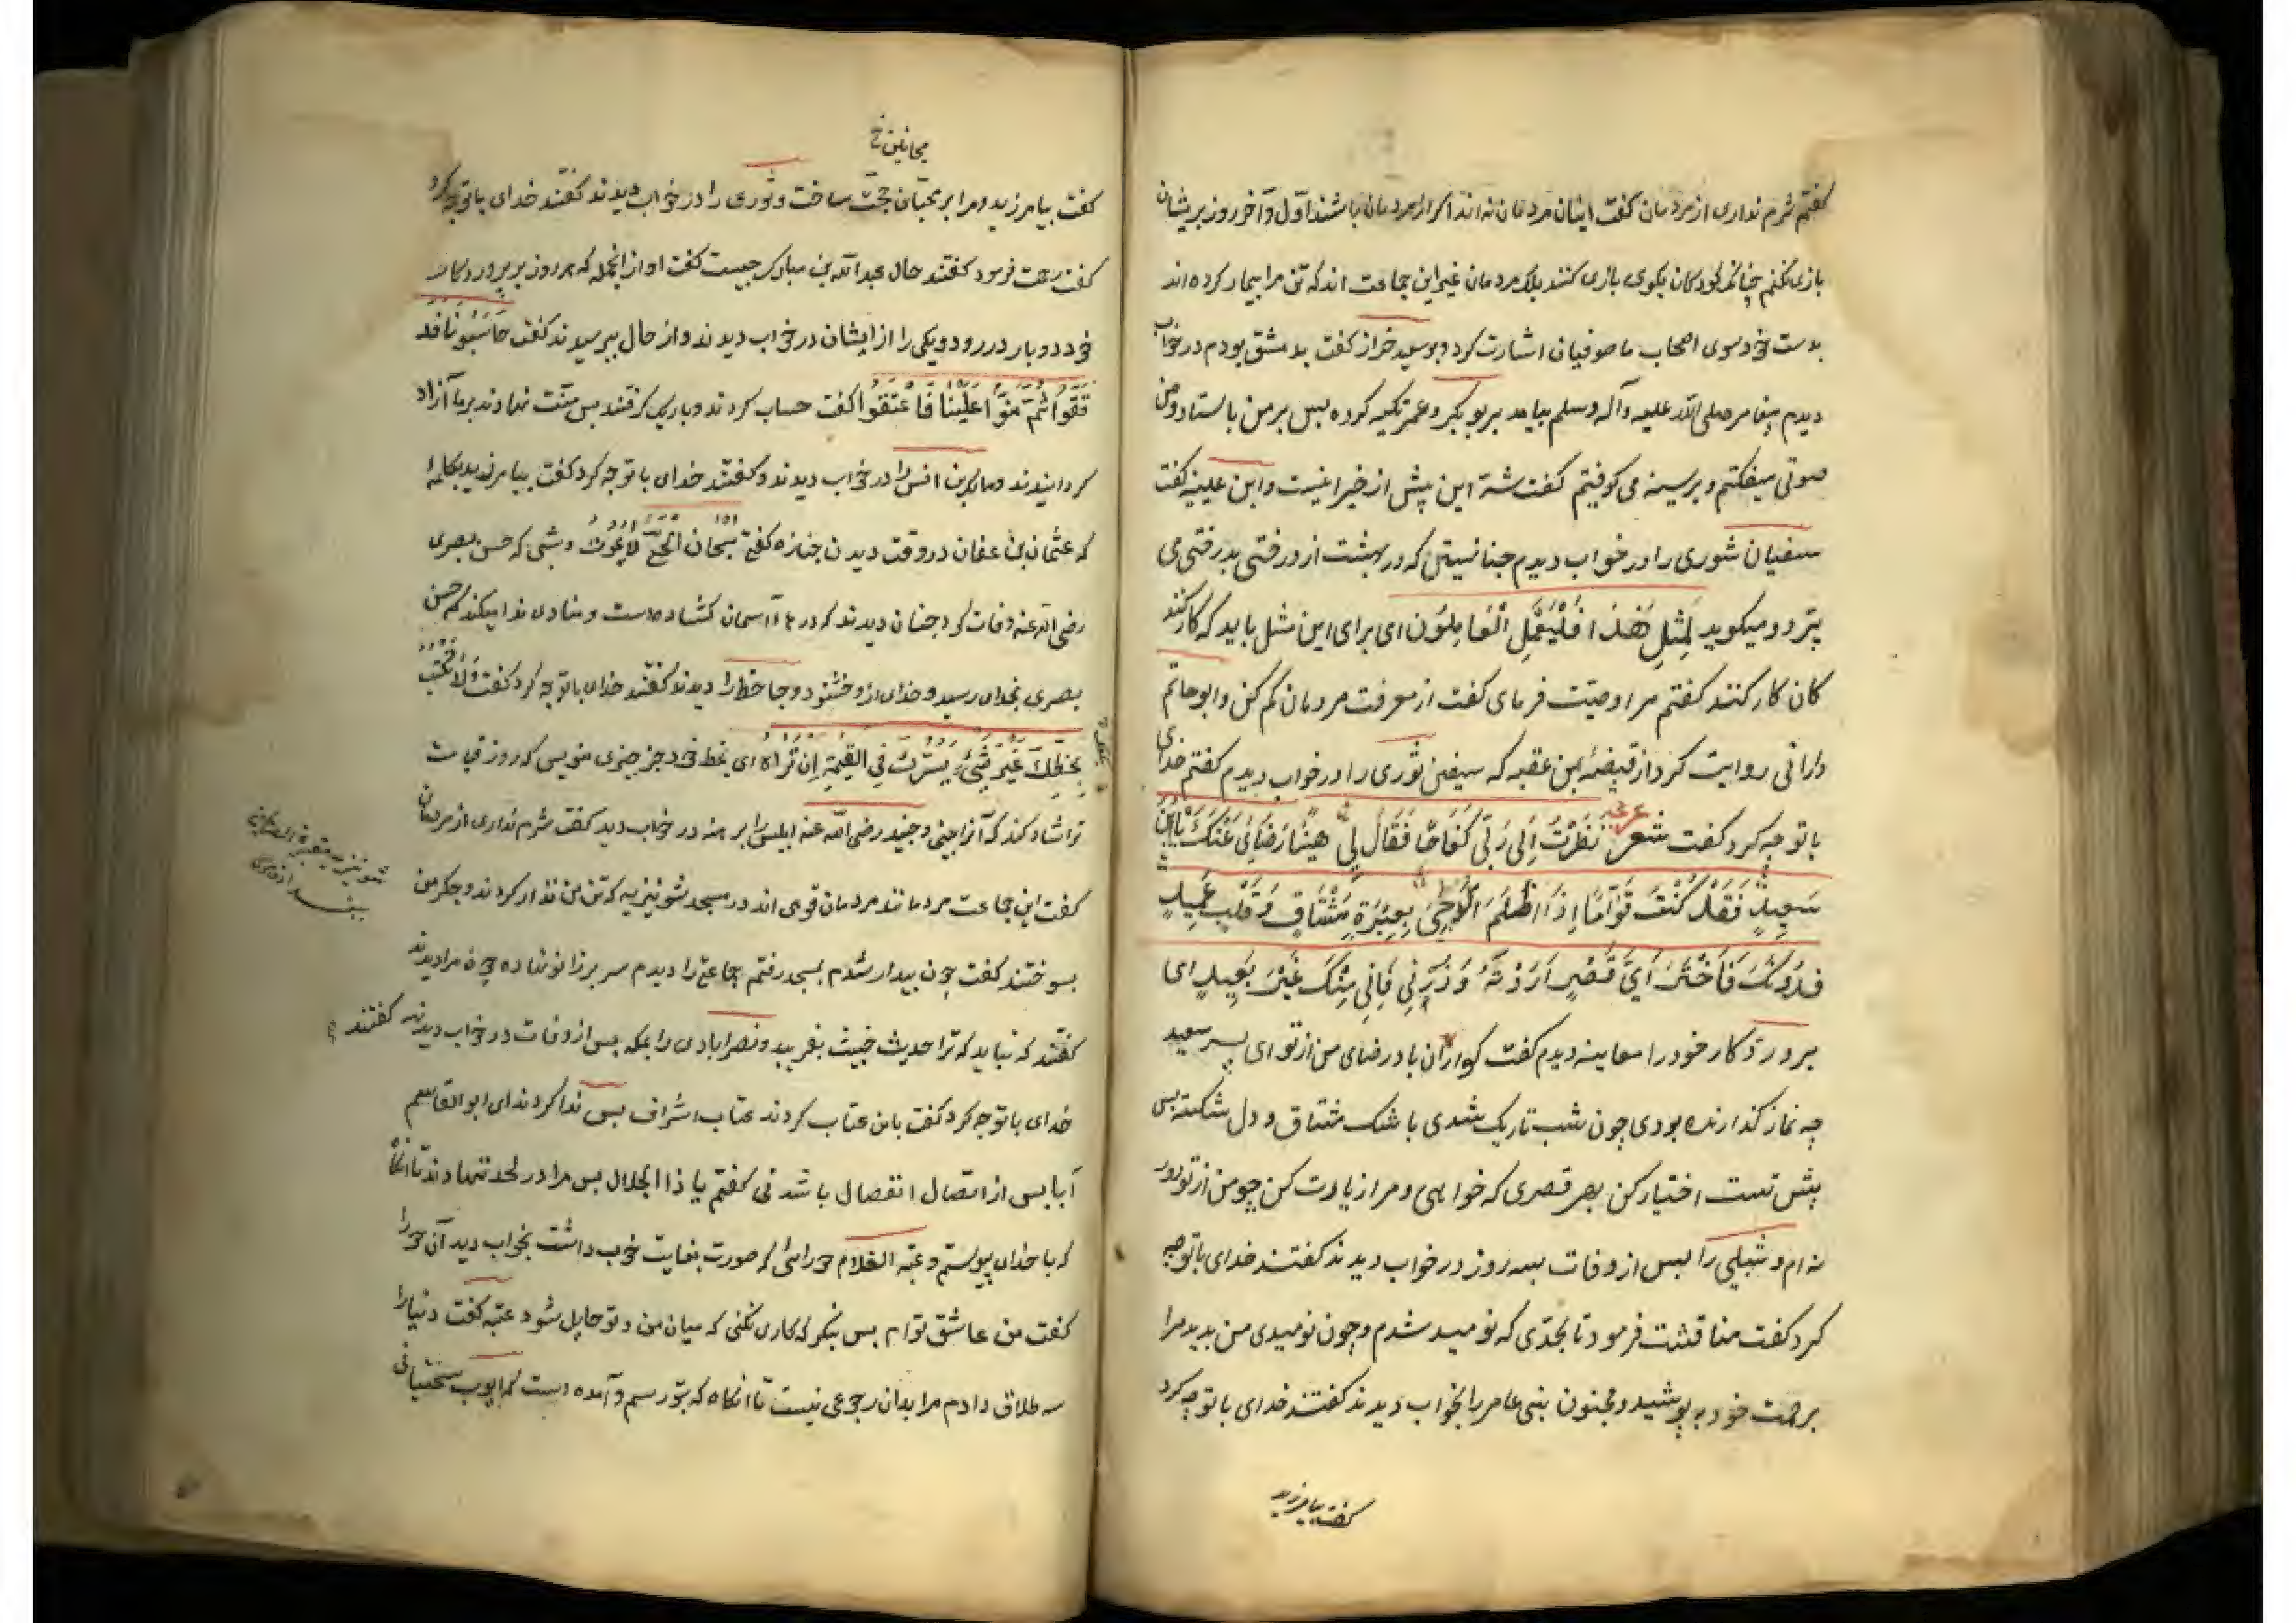 گفتم شرم نداری از مردمان گفت اینان مردمان نه اند اگر از مردمان باشند اول و آخر روز بریشان
بازی نکنم چنانکه کودکان بکوی بازی کنند بلکه مردمان غیر این جماعت اند که تن مرا بیمار کرده اند
بدست خود سوی اصحاب ما صوفیان اشارت کرد و بوسعید خراز گفت بدمشق بودم در خواب
دیدم پیغامبر صلی الله علیه وآله وسلم بیامد بر بوبکر و عمر تکیه کرده پس بر من بایستاد و من
صوتی میگفتم و بر سینه می کوفتم گفت شر این بیش از خیر او نیست و ابن علینیه گفت
سفیان ثوری را در خواب دیدم چنانستی که در بهشت از درختی بدرختی می
پرد و میگوید لِمِثْلِ هٰذَا فَلْیَعْمَلِ الْعَامِلُون ای برای این مثل باید که کار کنند
کان کار کنند گفتم مرا وصیت فرمای گفت از معرفت مردمان کم کن و ابو حاتم
دارانی روایت کرد از قبیضه ابن عقبه که سیفین ثوری را در خواب دیدم گفتم خدای
با تو چه کرد گفت شعر عربی نَظَرْتُ اِلی رَبّی کَفَاحًا فَقَالَ لِی هَنِیئًا رَضَائِی عَنْکَ یَا ابْنَ
سَعِیدٍ فَقَدْ کُنْتَ قَوَّامًا اِذَا اَظْلَمَ الدُّجٰی بِعِبْرَةِ مُشْتَاقٍ وَقَلْبٍ عَمِیدٍ
فَدُونَکَ فَاخْتَرْ اَیَّ قَصْرٍ اَرَدْتَهُ وَزُرْنِی فَاِنِّی مِنْکَ غَیْرَ بَعِیدٍ ای
پرورد کار خود را معاینه دیدم گفت کواران باد رضای من از تو ای پسر سعید
چه نماز گذارنده بودی چون شب تاریک شدی با شک مشتاق و دل شکسته پس
پیش تست اختیار کن هر قصری که خواهی و مرا زیارت کن چو من از تو دور
نه ام و شبلی را پس از وفات بسه روز در خواب دیدند گفتند خدای با تو چه
کرد گفت مناقشت فرمود تا بحدی که نومید شدم و چون نومیدی من بدید مرا
برحمت خود بپوشید و مجنون بنی عامر را بخواب دیدند گفتند خدای با تو چه کرد
گفت بیامرزید
مجانین خ
گفت بیامرزید و مرا بر محبان حجت ساخت و ثوری را در خواب دیدند گفتند خدای با تو چه کرد
گفت رحمت فرمود گفتند حال عبدالله بن مبارک چیست گفت او از انجمله که هر روز بر پروردکار
خود دو بار در رود و یکی را از ایشان در خواب دیدند و از حال بپرسیدند گفت حَاسَبُونَا فَدَ
قَّقُوا ثُمَّ مَنُّوا عَلَیْنَا فَاعْتَقُوا گفت حساب کردند و باریک گرفتند پس منت نهادند بر ما آزاد
کردانیدند و مالک بن انس را در خواب دیدند و گفتند خدای با تو چه کرد گفت بیامرزید بکلمۀ
که عثمان بن عفان در وقت دیدن جنازه گفتی سُبْحَانَ الْحَیِّ لَا یَمُوتُ و شبی که حسن بصری
رضی الله عنه وفات کرد چنان دیدند که درهاء آسمان گشاده است و منادی ندا میکند که حسن
بصری بخدای رسید و خدای ازو خشنود و جاحظ را دیدند گفتند خدای با تو چه کرد گفت وَلَا تَکْتُبْ
بِخَطِّکَ غَیْرَ شَیْءٍ یَسُرُّکَ فِی الْقِیٰمَةِ اِنْ تَرَاهُ ای بخط خود جز چیزی منویس که روز قیامت
ترا شاد کند که آنرا بینی و جنید رضی الله عنه ابلیس را برهنه در خواب دید گفت شرم نداری از مردمان
گفت این جماعت مردمانند مردمان قومی اند در مسجد شونیزیه که تن من نزار کردند و جگر من
بسوختند گفت چون بیدار شدم بمسجد رفتم جماعتی را دیدم سر بر زانو نهاده چون مرا دیدند
گفتند که نباید که ترا حدیث خبیث بفریبد و نصرابادی را بمکه پس از وفات در خواب دیدند گفتند
خدای با تو چه کرد گفت با من عتاب کردند عتاب اشراف پس ندا کردند ای ابو القاسم
آیا پس از اتصال انفصال باشد نی گفتم یا ذا الجلال پس مرا در لحد ننهادند تا انکا
که با خدای پیوستم و عتبه الغلام حورائی که صورت بغایت خوب داشت بخواب دید آن حورا
گفت من عاشق توام پس بنگر که کاری نکنی که میان من و تو حایل شود عتبه گفت دنیا را
سه طلاق دادم مرا بدان رجوعی نیست تا انکاه که بتو رسم و آمده است که ایوب سختیانی
شونیزیه مقبرة الصالحین
ببغداد